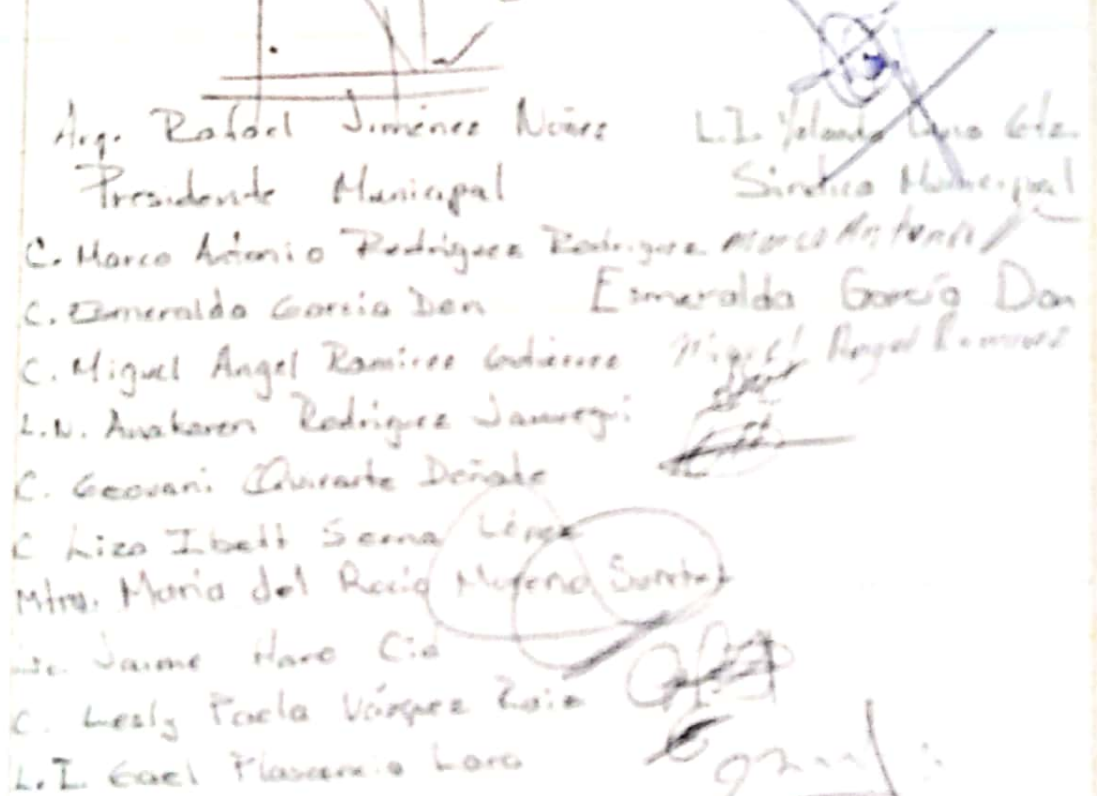 Arq. Rafael Jiménez Núñez L.I. Yolanda Gtz.
Presidente Municipal Síndica Municipal
C. Marco Antonio Rodríguez Rodríguez Marco Antonio
C. Esmeralda García Don Esmeralda García Don
C. Miguel Angel Ramírez Gutiérrez Miguel Angel Ramírez
L.N. Anakaren Rodríguez Jauregui
C. Geovani Quirarte Deñate
C Liza Ibett Serna López
Mtra. María del Rocío Moreno
Lic. Jaime Haro Cid
C. Lesly Paola Vázquez Ruiz
L.I. Gael Plascencia Lara